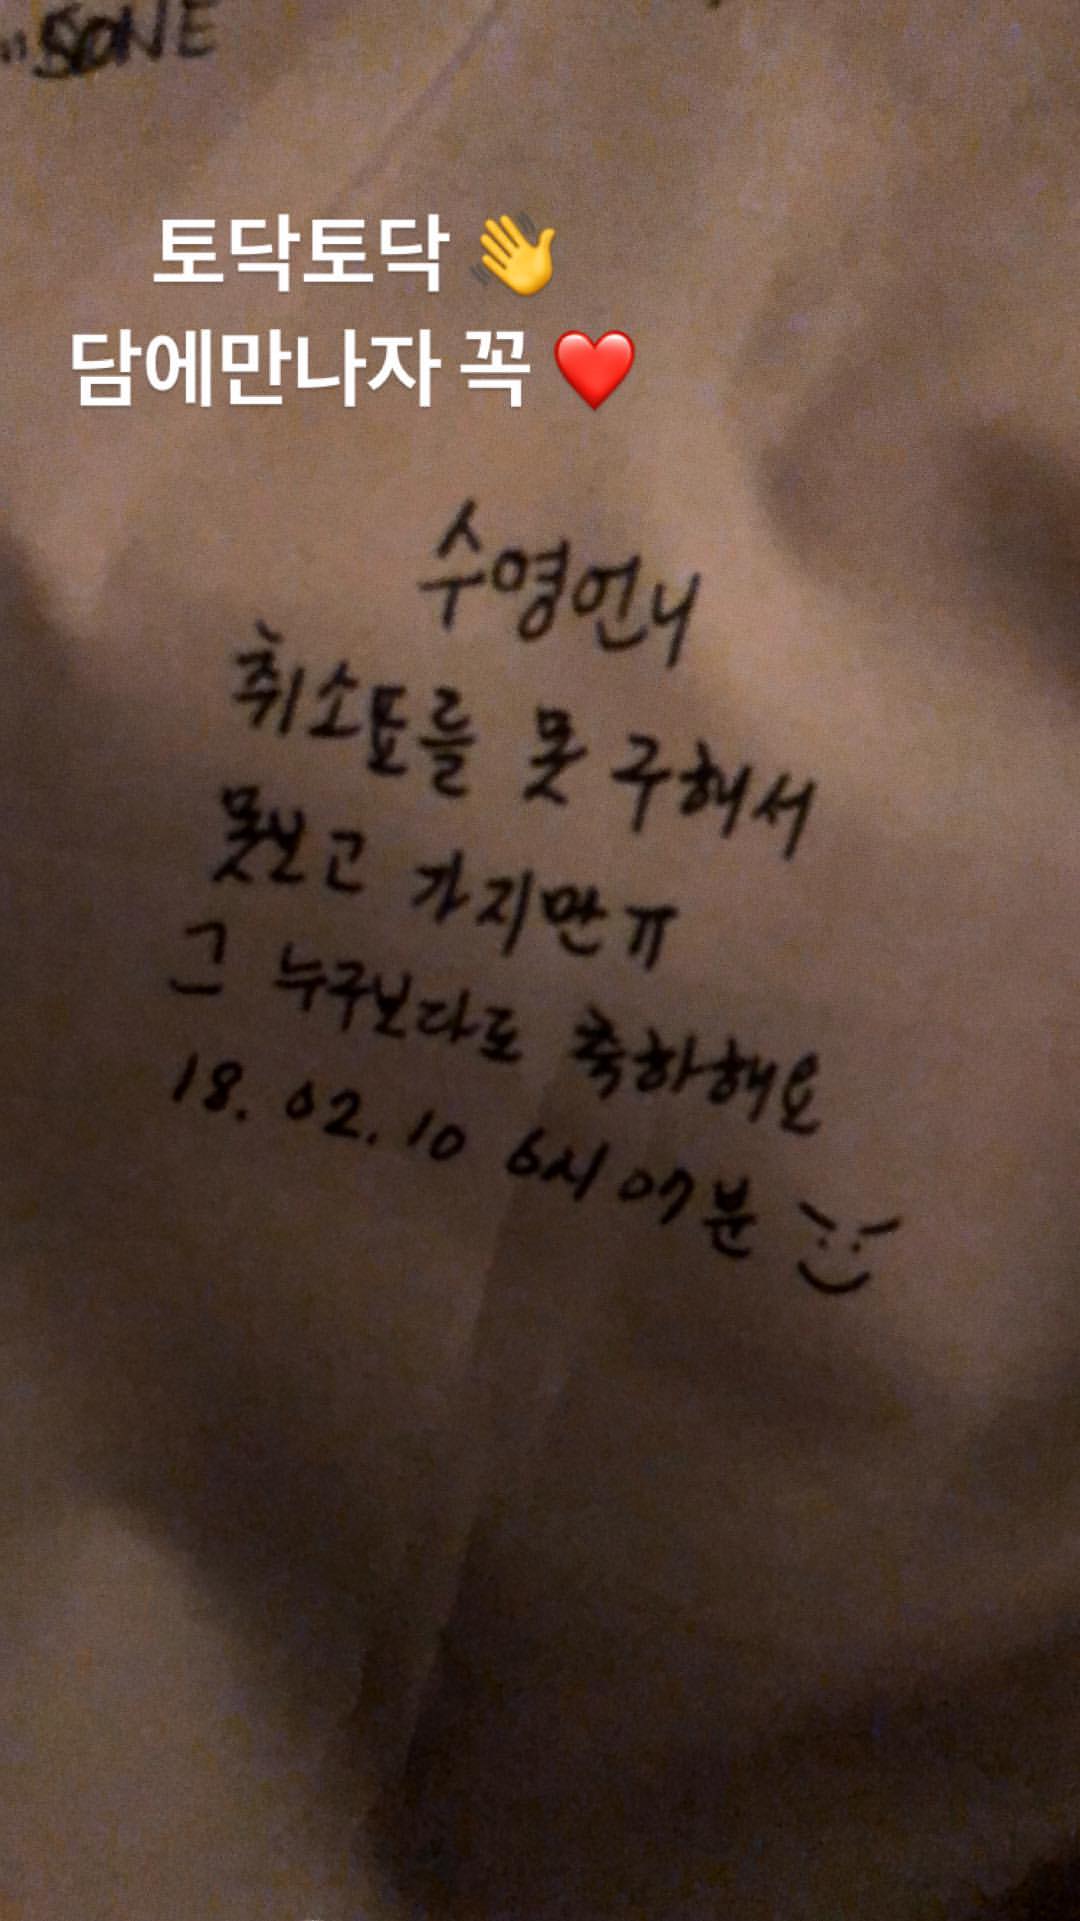 "SONE
토닥토닥 👋
담에만나자 꼭 ❤️
수영언니
취소표를 못 구해서
못보고 가지만ㅠ
그 누구보다도 축하해요
18. 02. 10 6시 07분